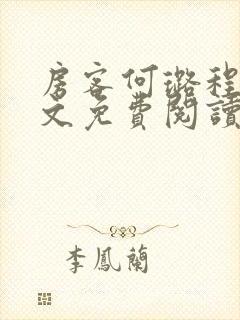 房客何璐程
文免費閱讀
李鳳蘭